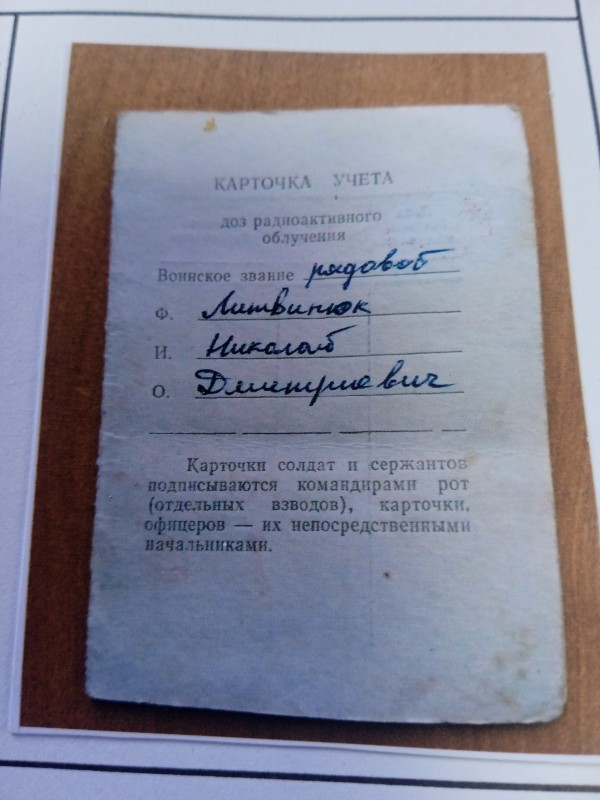 КАРТОЧКА УЧЕТА
доз радиоактивного
облучения
Воинское звание рядовой
Ф. Литвинюк
И. Николай
О. Дмитриевич
Карточки солдат и сержантов
подписываются командирами рот
(отдельных взводов), карточки
офицеров — их непосредственными
начальниками.